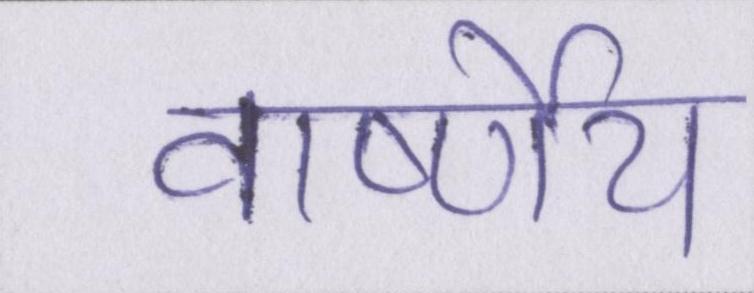 वार्ष्णेय